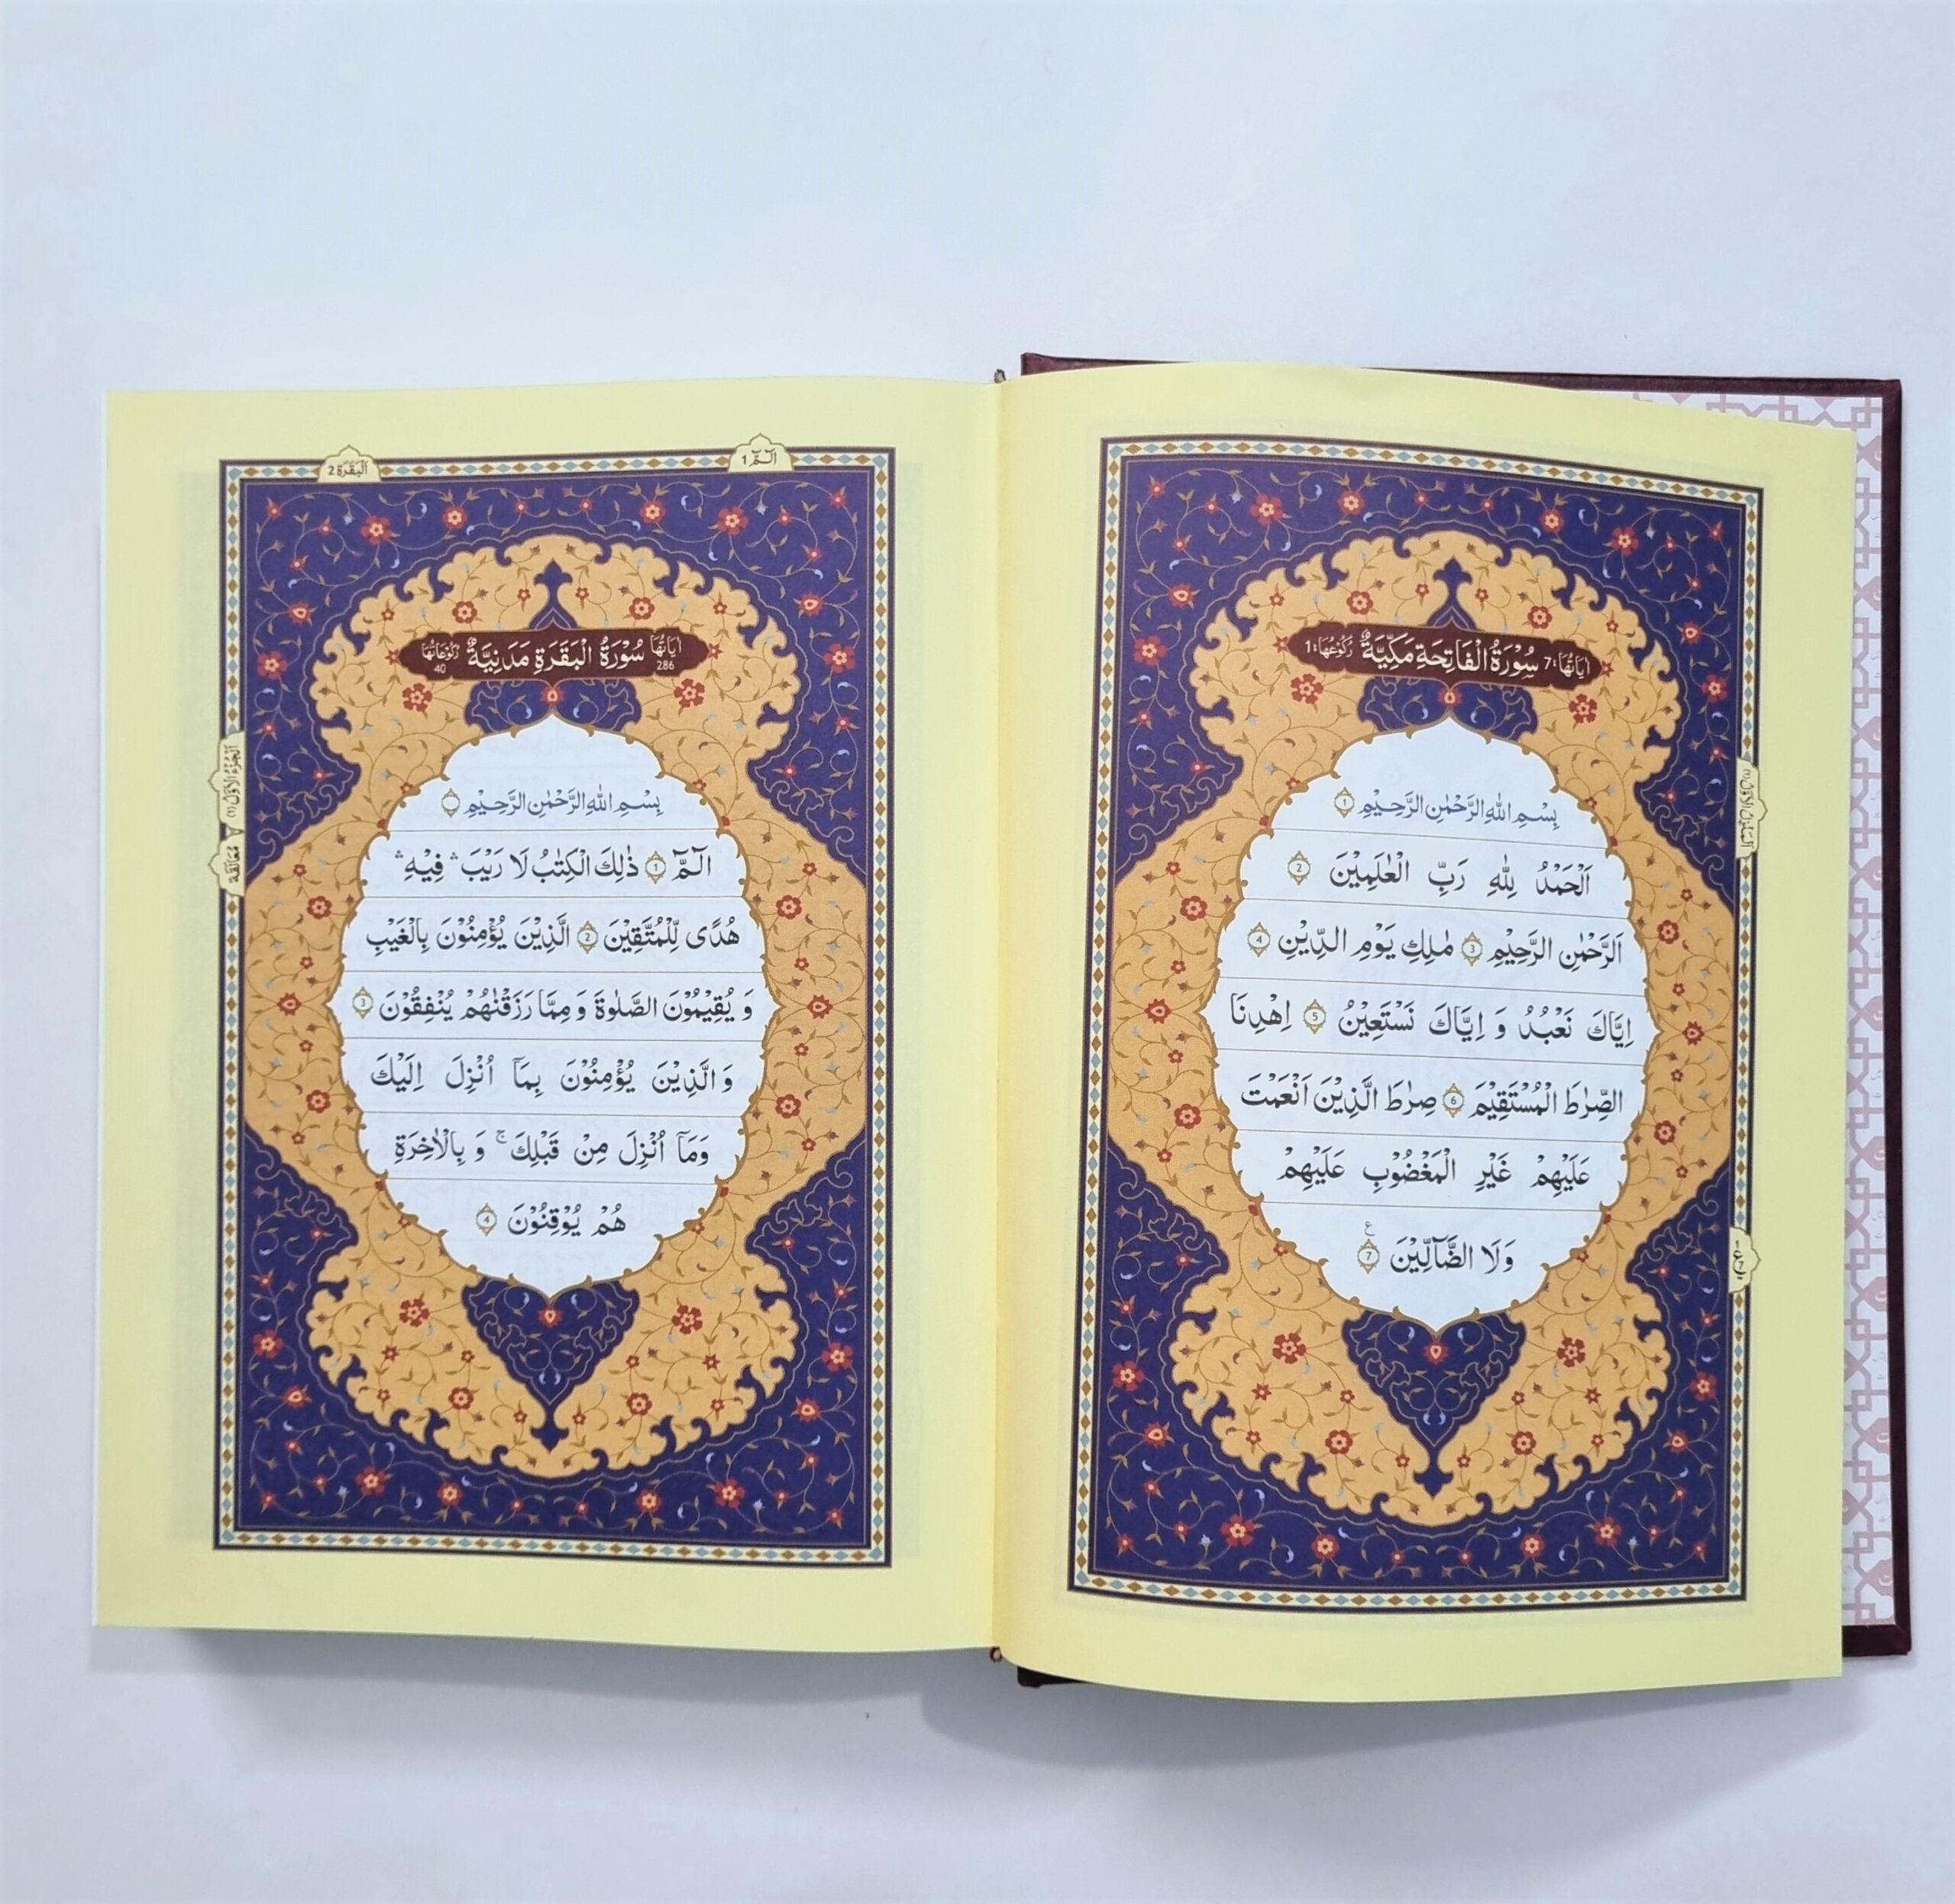 اٰيَاتُهَا: 7 سُوْرَةُ الْفَاتِحَةِ مَكِّيَّةٌ رُكُوْعُهَا: 1
بِسْمِ اللّٰهِ الرَّحْمٰنِ الرَّحِيْمِ 1
اَلْحَمْدُ لِلّٰهِ رَبِّ الْعٰلَمِيْنَ 2
الرَّحْمٰنِ الرَّحِيْمِ 3 مٰلِكِ يَوْمِ الدِّيْنِ 4
اِيَّاكَ نَعْبُدُ وَ اِيَّاكَ نَسْتَعِيْنُ 5 اِهْدِنَا
الصِّرٰطَ الْمُسْتَقِيْمَ 6 صِرٰطَ الَّذِيْنَ اَنْعَمْتَ
عَلَيْهِمْ غَيْرِ الْمَغْضُوْبِ عَلَيْهِمْ
وَلَا الضَّآلِّيْنَ 7 ع
اَلْمَنْزِلُ الْاَوَّلُ (1)
الٓمّٓ 1
اَلْبَقَرَة 2
اٰيَاتُهَا 286 سُوْرَةُ الْبَقَرَةِ مَدَنِيَّةٌ رُكُوْعَاتُهَا 40
بِسْمِ اللّٰهِ الرَّحْمٰنِ الرَّحِيْمِ
الٓمّٓ 1 ذٰلِكَ الْكِتٰبُ لَا رَيْبَ ۛ فِيْهِ ۛ
هُدًى لِّلْمُتَّقِيْنَ 2 الَّذِيْنَ يُؤْمِنُوْنَ بِالْغَيْبِ
وَ يُقِيْمُوْنَ الصَّلٰوةَ وَ مِمَّا رَزَقْنٰهُمْ يُنْفِقُوْنَ 3
وَ الَّذِيْنَ يُؤْمِنُوْنَ بِمَآ اُنْزِلَ اِلَيْكَ
وَمَآ اُنْزِلَ مِنْ قَبْلِكَ ۚ وَ بِالْاٰخِرَةِ
هُمْ يُوْقِنُوْنَ 4
اَلْجُزْءُ الْاَوَّلُ (1)
مُعَانَقَة